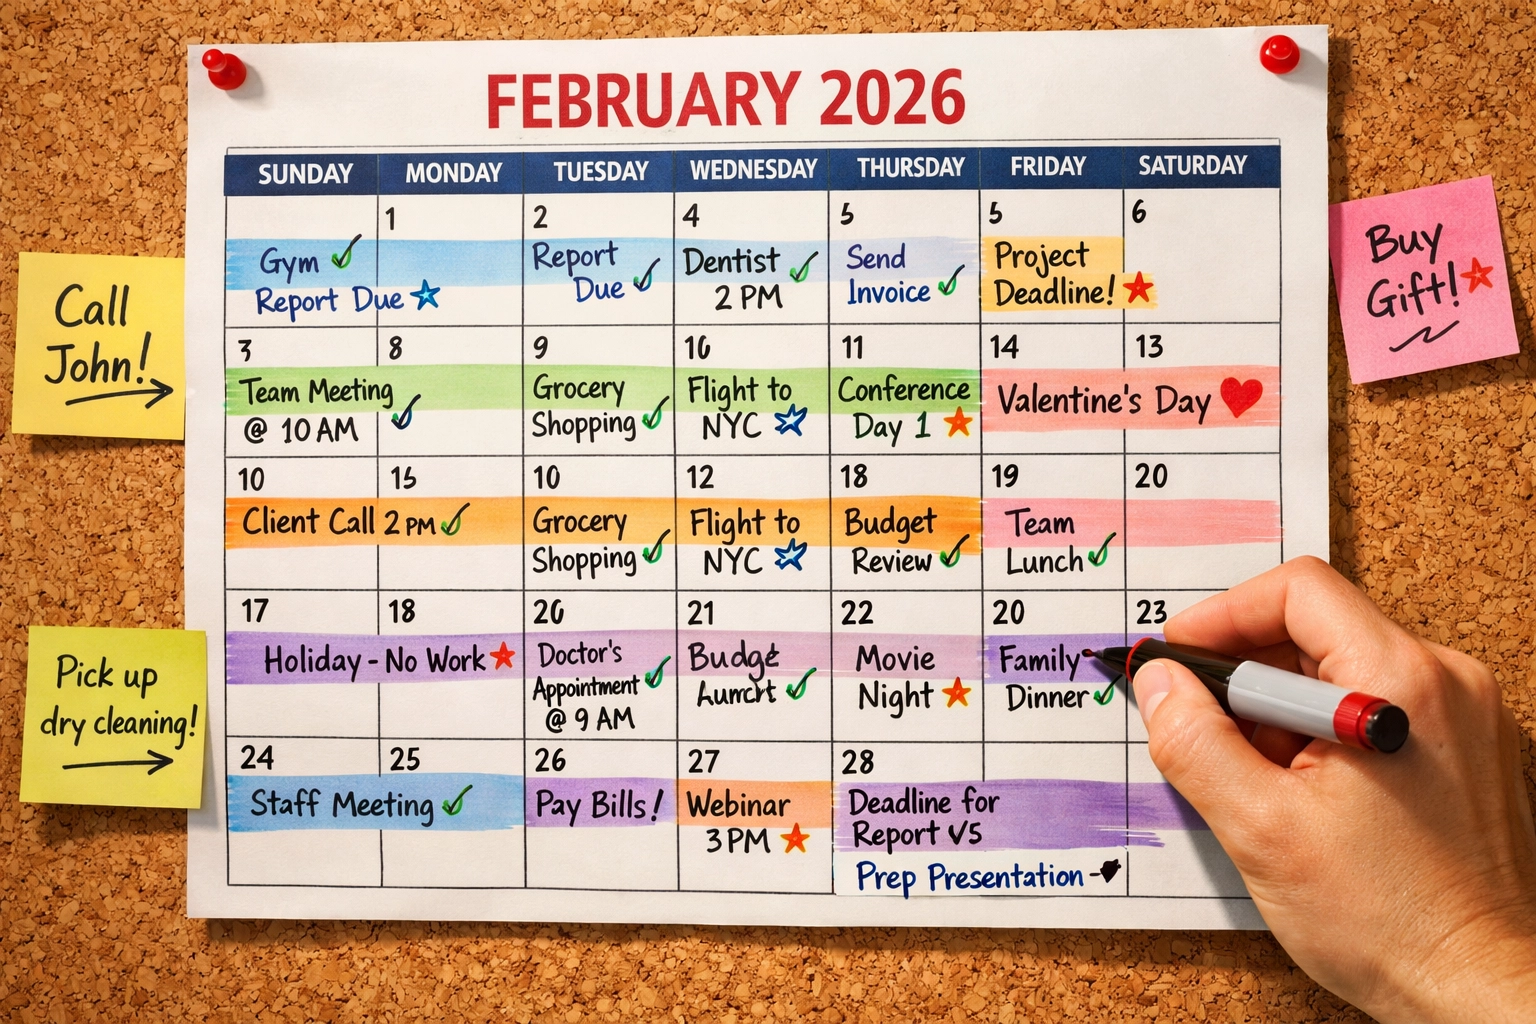 FEBRUARY 2026
SUNDAY MONDAY TUESDAY WEDNESDAY THURSDAY FRIDAY SATURDAY
1 2 4 5 5 6
Gym
Report Due
Report
Due
Dentist
2 PM
Send
Invoice
Project
Deadline!
3 8 9 10 11 14 13
Team Meeting
@ 10 AM
Grocery
Shopping
Flight to
NYC
Conference
Day 1
Valentine's Day
10 15 10 12 18 19 20
Client Call 2 PM
Grocery
Shopping
Flight to
NYC
Budget
Review
Team
Lunch
17 18 20 21 22 20 23
Holiday - No Work
Doctor's
Appointment
@ 9 AM
Movie
Night
Family
Dinner
24 25 26 27 28
Staff Meeting
Pay Bills!
Webinar
3 PM
Deadline for
Report V5
Prep Presentation
Call
John!
Pick up
dry cleaning!
Buy
Gift!